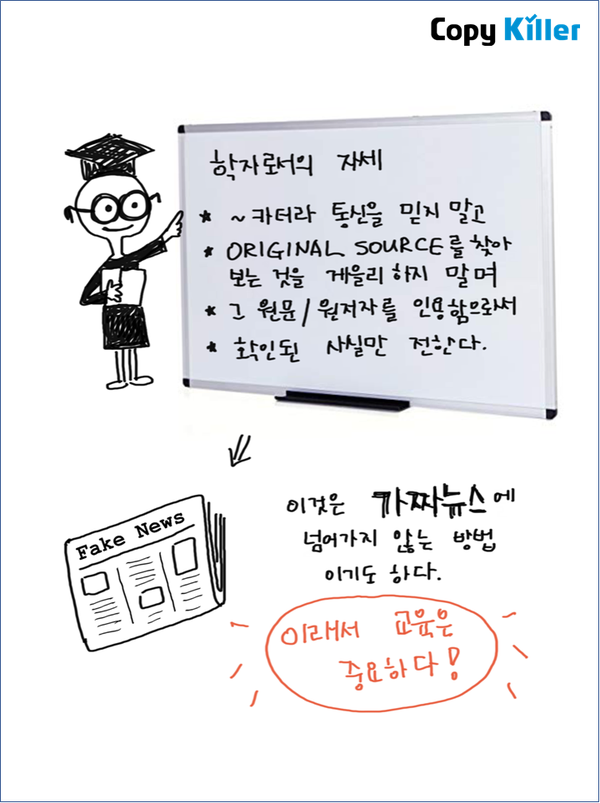 Copy Killer
학자로서의 자세
* ~카더라 통신을 믿지 말고
* ORIGINAL SOURCE를 찾아
보는 것을 게을리 하지 말며
* 그 원문/원저자를 인용함으로서
* 확인된 사실만 전한다.
Fake News
이것은 가짜뉴스에
넘어가지 않는 방법
이기도 하다.
이래서 교육은
중요하다!